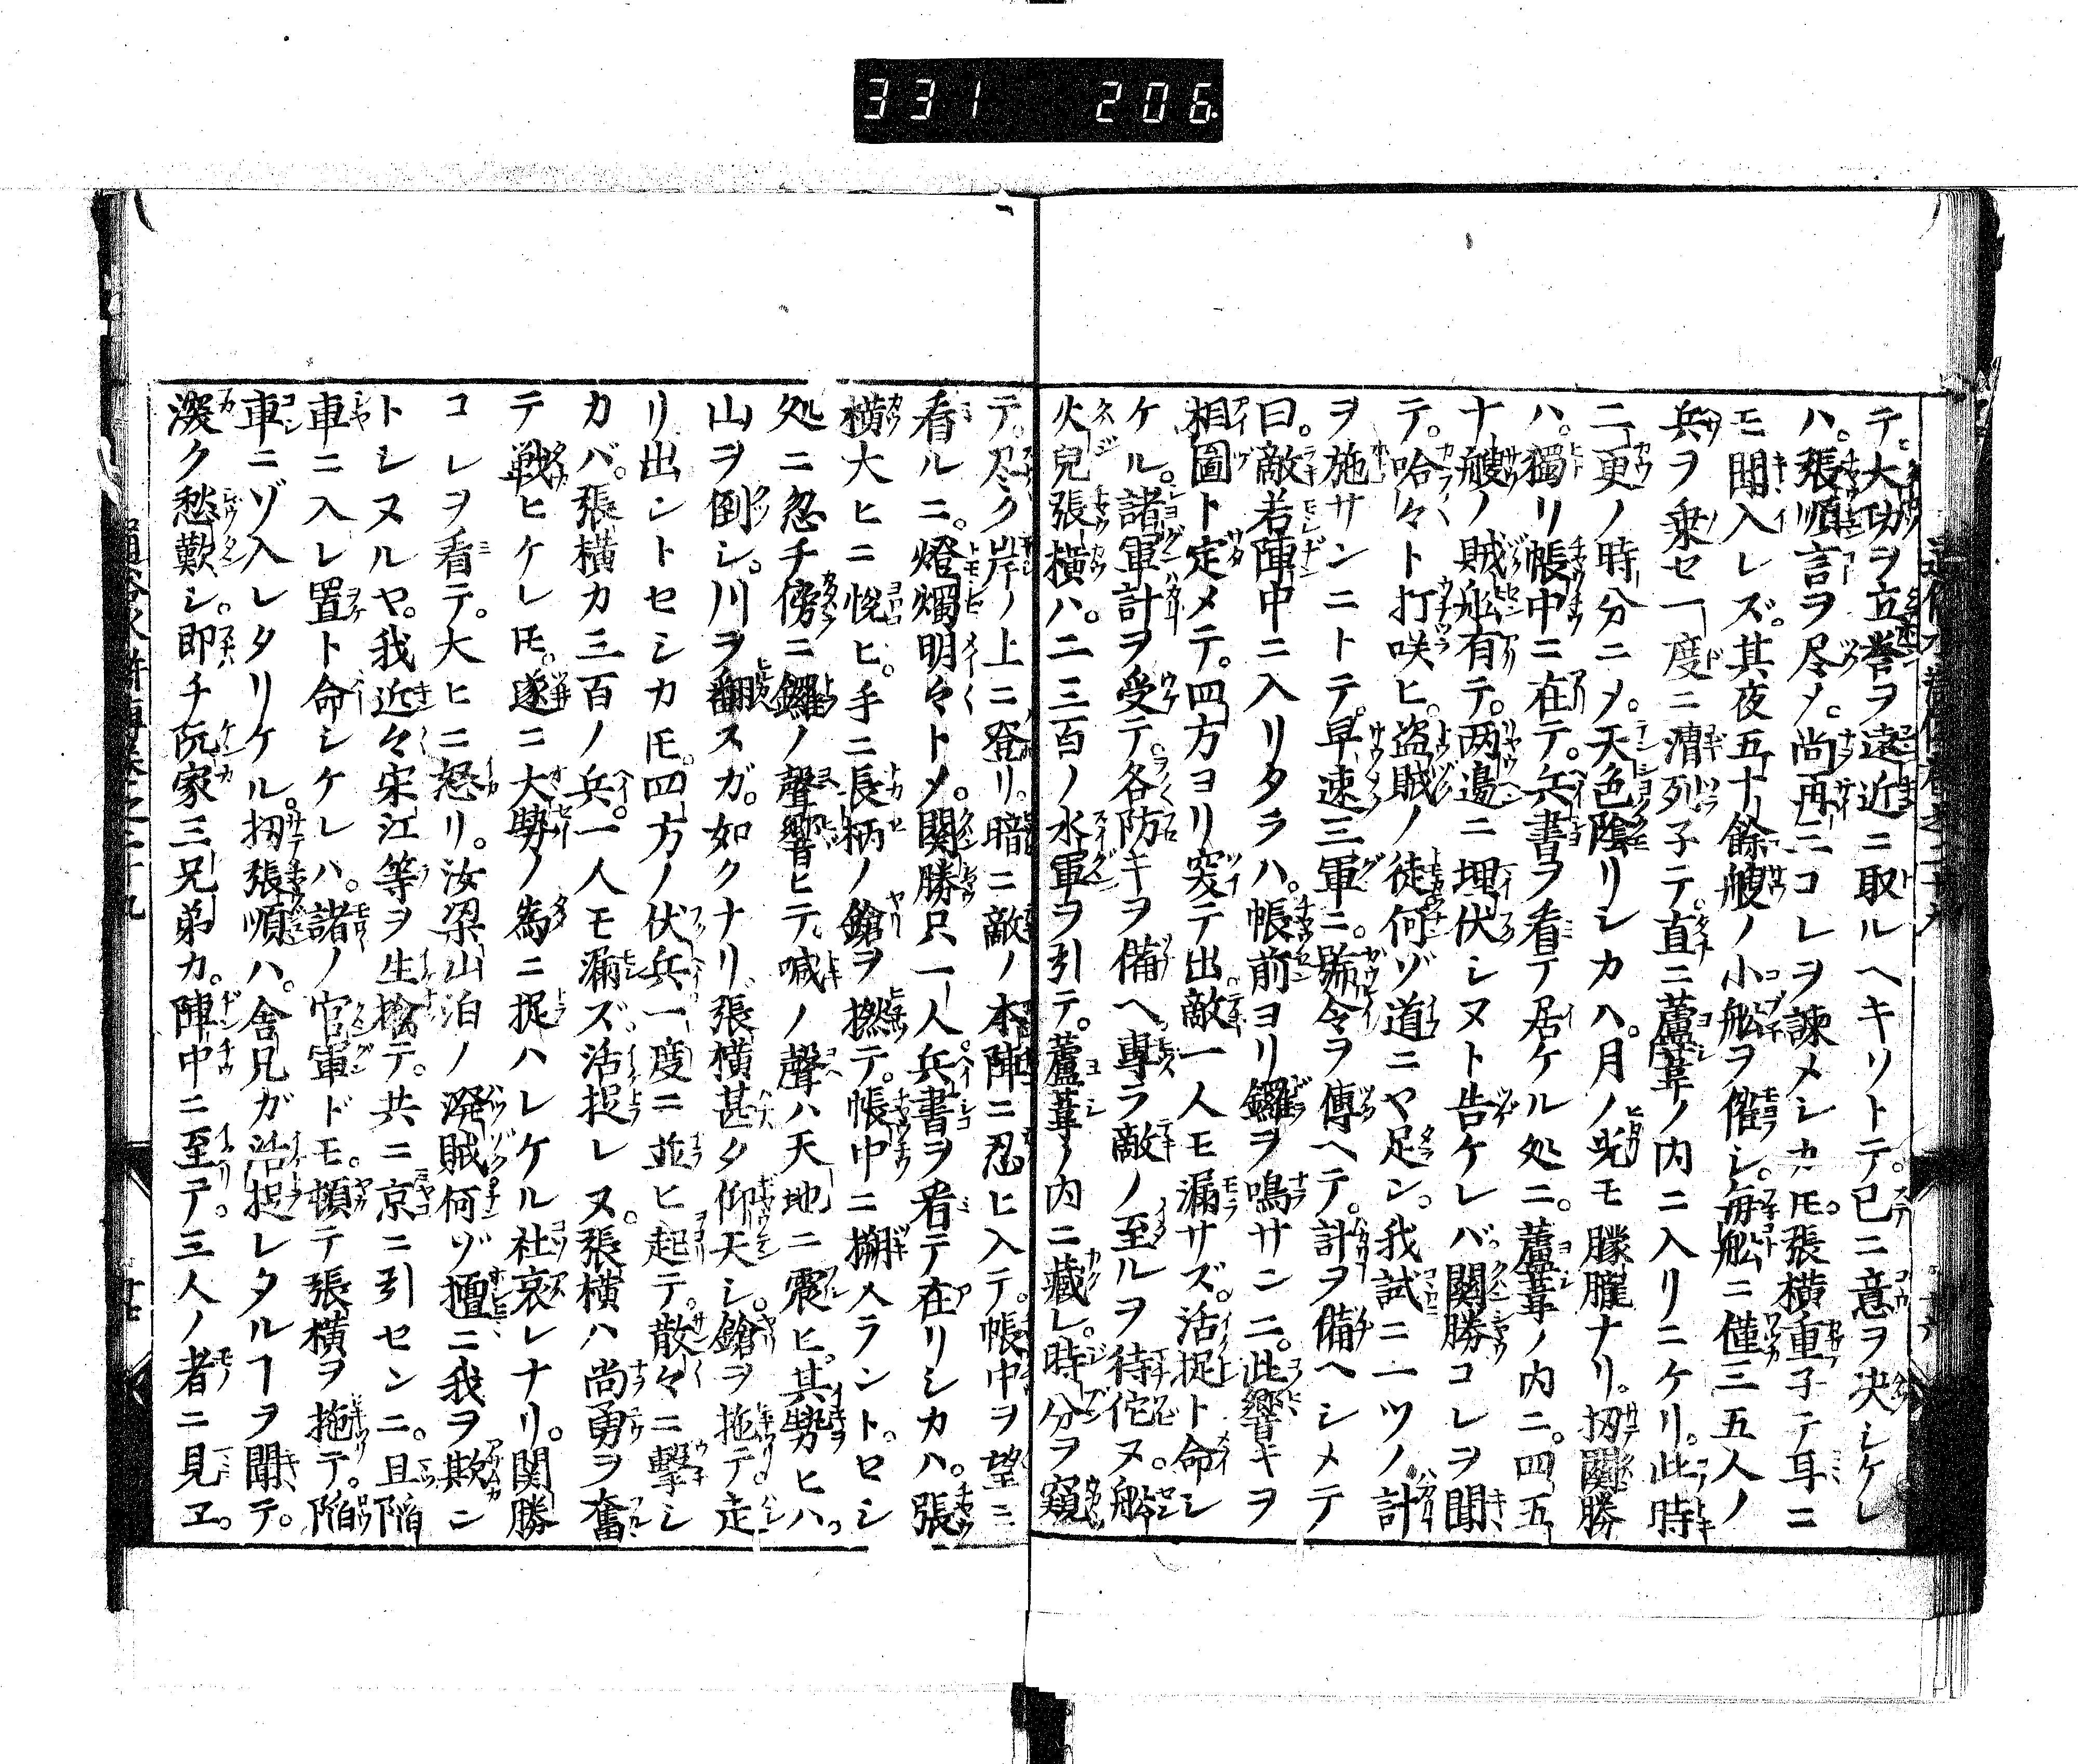 331 206
テ。大功ヲ立誉ヲ遠近ニ取ルヘキリトテ。已ニ意ヲ决シケレ
ハ。張順言ヲ尽〆。尚再三コレヲ諫メシカ𪜈。張横重子テ耳ニ
モ聞入レズ。其夜五十餘艘ノ小舩ヲ催シ。毎舩ニ僅三五人ノ
兵ヲ乗セ一度ニ漕列子テ。直ニ蘆葦ノ内ニ入リニケリ。此時
二更ノ時分ニ〆。天色陰リシカハ。月ノ光モ朦朧ナリ。扨關勝
ハ。獨リ帳中ニ在テ。兵書ヲ看テ居ケル処ニ。蘆葦ノ内ニ。四五
十艘ノ賊舩有テ。两邉ニ埋伏シヌト告ケレバ。関勝コレヲ聞
テ。哈々ト打咲ヒ。盗賊ノ徒何ゾ道ニヤ足ン。我試ニ一ツノ計
ヲ施サンニトテ。早速三軍ニ。號令ヲ傳ヘテ。計ヲ備ヘシメテ
曰。敵若陣中ニ入リタラハ。帳前ヨリ鑼ヲ鳴サンニ。此響キヲ
相圖ト定メテ。四方ヨリ突テ出。敵一人モ漏サズ。活捉ト命シ
ケル。諸軍計ヲ受テ。各防キヲ備ヘ。專ラ敵ノ至ルヲ待侘ヌ。舩
火兒張横ハ。二三百ノ水軍ヲ引テ。蘆葦ノ内ニ藏レ。時分ヲ窺
テ。尽ク岸ノ上ニ登リ。暗ニ敵ノ本陣ニ忍ヒ入テ。帳中ヲ望ニ
看ルニ。燈燭明々ト〆。関勝只一人。兵書ヲ看テ在リシカハ。張
横大ヒニ悦ヒ。手ニ長柄ノ鎗ヲ撚テ。帳中ニ搠入ラントロシ
処ニ忽チ傍ニ鑼ノ聲響ヒテ。喊ノ聲ハ天地ニ震ヒ。其勢ヒハ。
山ヲ倒シ。川ヲ翻スガ。如クナリ。張横甚タ仰天シ。鎗ヲ拖テ。走
リ出ントセシカ𪜈。四方ノ伏兵一度ニ並ヒ起テ。散々ニ擊シ
カバ。張横カ三百ノ兵。一人モ漏ズ。活捉レヌ。張横ハ尚勇ヲ奮
テ戦ヒケレ𪜈。遂ニ大勢ノ為ニ捉ハレケル社哀レナリ。関勝
コレヲ看テ。大ヒニ怒リ。汝梁山泊ノ溌賊何ゾ擅ニ我ヲ欺ン
トシヌルヤ。我近々宋江等ヲ生擒テ。共ニ京ニ引センニ。且陥
車ニ入レ置ト命シケレハ。諸ノ官軍ドモ。頓テ張横ヲ拖テ。陥
車ニゾ入レタリケル。扨張順ハ。舎兄ガ活捉レタルヿヲ聞テ。
深ク愁歎シ。即チ阮家三兄弟カ。陣中ニ至テ。三人ノ者ニ見エ。